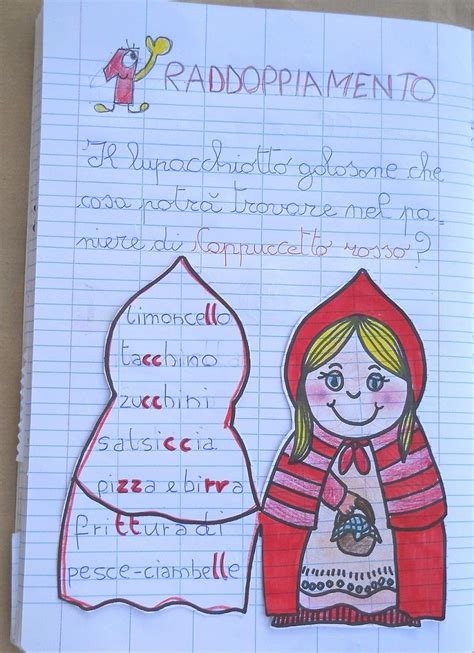 1 RADDOPPIAMENTO
Il lupacchiotto golosone che
cosa potrà trovare nel pa-
niere di Cappuccetto rosso?
limoncello
tacchino
zucchini
salsiccia
pizza e birra
frittura di
pesce-ciambelle